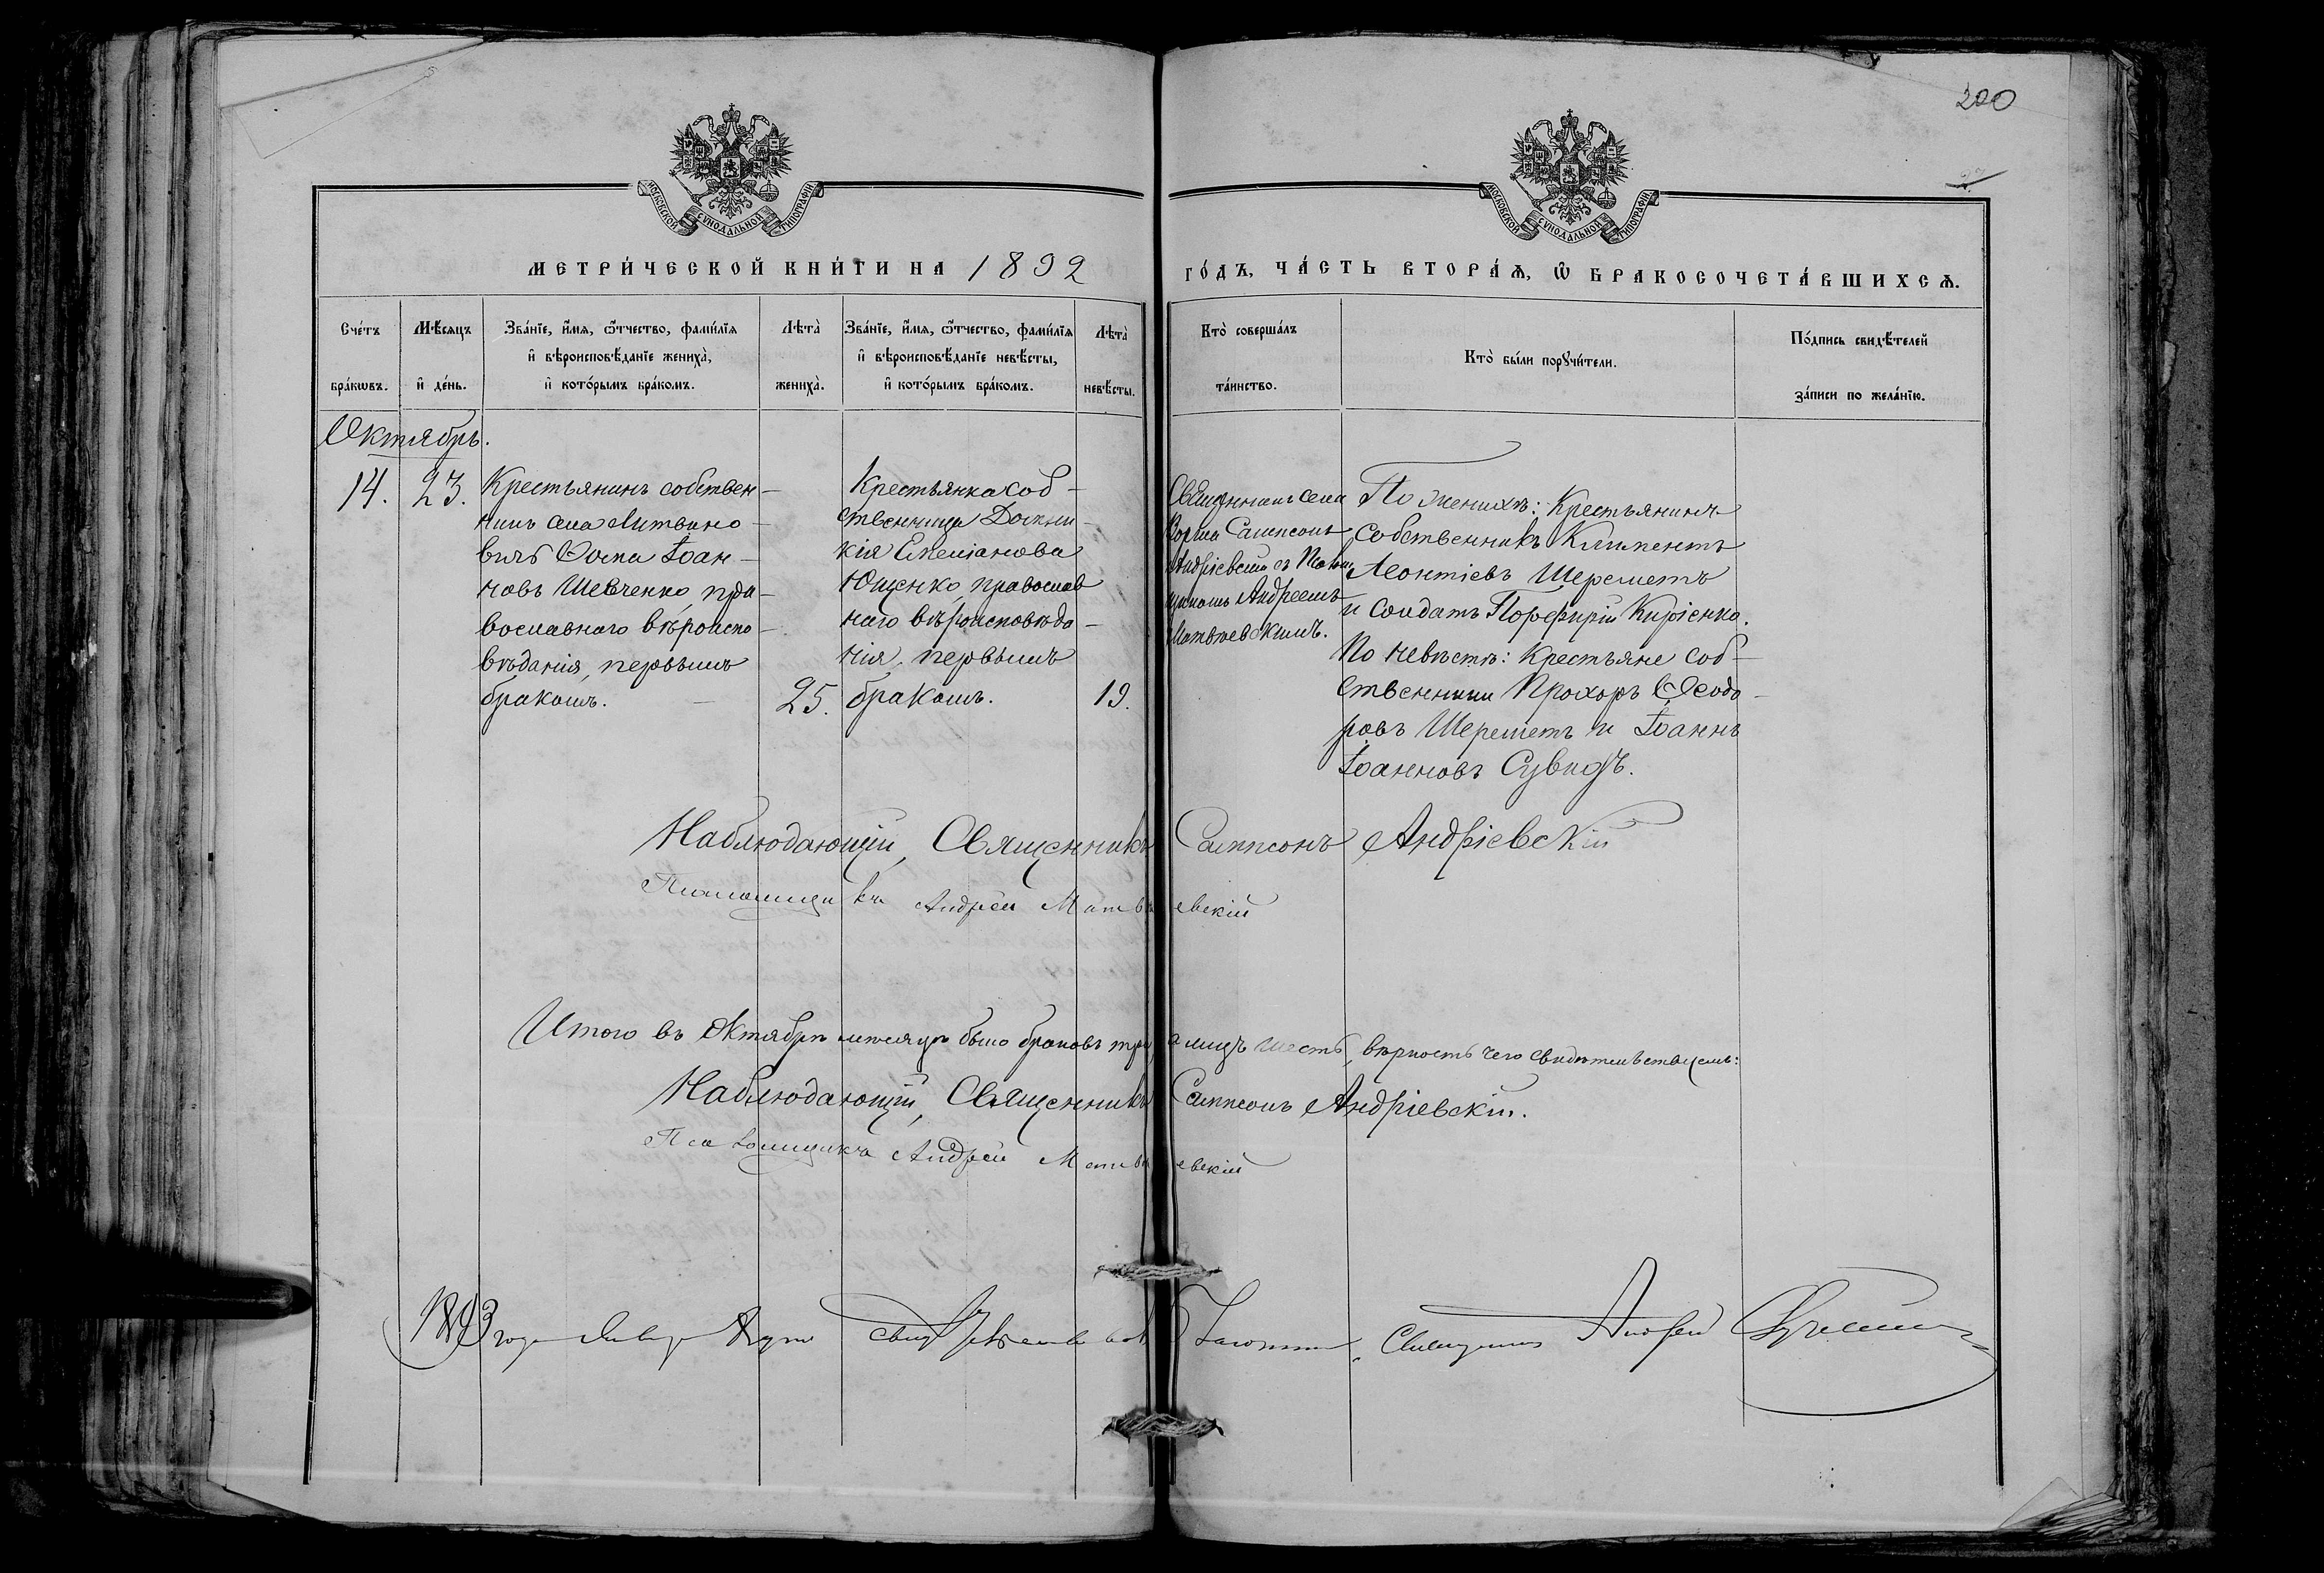 200
МОСКОВСКОЙ СѴНОДАЛЬНОЙ ТИПОГРАФІИ
МОСКОВСКОЙ СѴНОДАЛЬНОЙ ТИПОГРАФІИ
МЕТРИ́ЧЕСКОЙ КНИ́ГИ НА 1892
ГО́ДЪ, ЧА́СТЬ ВТОРА́Ѧ, Ѡ҆ БРАКОСОЧЕТА́ВШИХСѦ.
Сче́тъ
бра́кѡвъ.
Мѣ́сяцъ
и҆ де́нь.
Зва́нїе, и҆́мѧ, ѻ҆́тчество, фами́лїѧ
и҆ вѣроисповѣ́данїе жениха̀,
и҆ кото́рымъ бра́комъ.
Лѣта̀
жениха̀.
Зва́нїе, и҆́мѧ, ѻ҆́тчество, фами́лїѧ
и҆ вѣроисповѣ́данїе невѣ́сты,
и҆ кото́рымъ бра́комъ.
Лѣта̀
невѣ́сты.
Кто̀ соверша́лъ
та́инство.
Кто̀ бы́ли порꙋчи́тели.
По́дпись свидѣ́телей
за́писи по жела́нїю.
Октябрь.
14.
23.
Крестьянинъ собствен-
никъ села Литвино-
вилъ Ѳома Іоан-
новъ Шевченко, пра-
вославнаго вѣроиспо-
вѣданія, первымъ
бракомъ.
25.
Крестьянка соб-
ственница Домни-
кія Емеліанова
Ющенко, православ
наго вѣроисповѣда-
нія, первымъ
бракомъ.
19.
Священникъ села
Сампсонъ
Андріевскій съ Псалом
щикомъ Андреемъ
Матвѣевскимъ.
По женихѣ: Крестьянинъ
собственникъ Климентъ
Леонтіевъ Шереметъ
и солдатъ Порфирій Киріенко.
По невѣстѣ: Крестьяне соб-
ственники Прохоръ Ѳеодо-
ровъ Шереметъ и Іоаннъ
Іоанновъ
Наблюдающій, Священникъ Сампсонъ Андріевскій
Псаломщикъ Андрей Матвѣевскій
Итого въ Октябрѣ мѣсяцѣ было браковъ три, а лицъ шесть, вѣрность чего свидѣтельствуемъ:
Наблюдающій, Священникъ Сампсонъ Андріевскій.
Псаломщикъ Андрей Матвѣевскій
1893 года
Священникъ Андрей